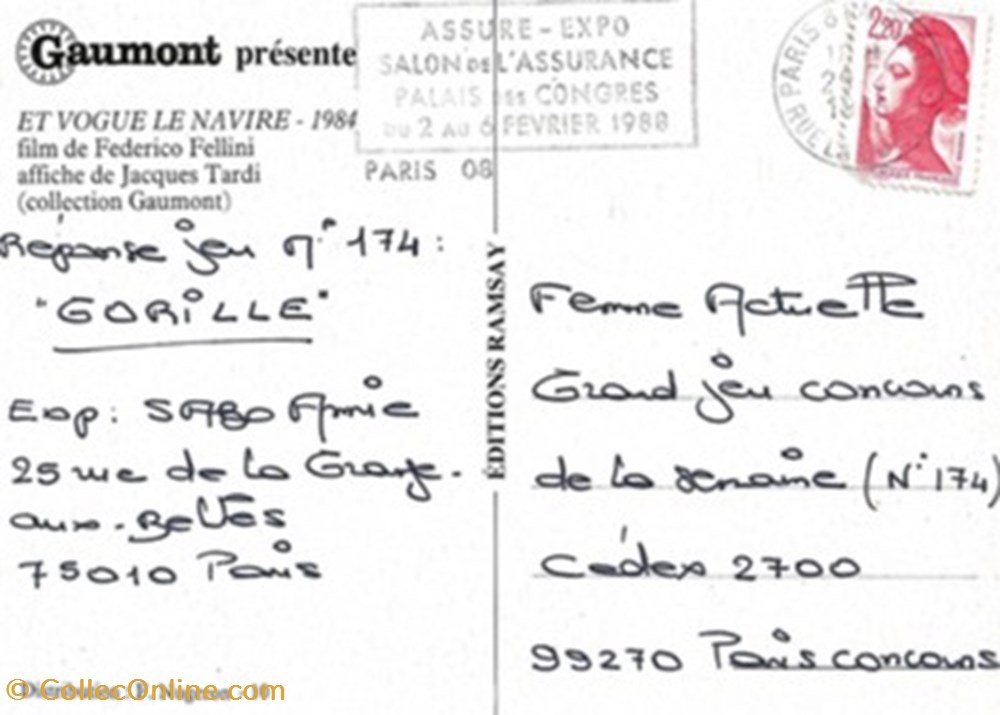 Gaumont présente
ET VOGUE LE NAVIRE - 1984
film de Federico Fellini
affiche de Jacques Tardi
(collection Gaumont)
ASSURE - EXPO
SALON DE L'ASSURANCE
PALAIS DES CONGRES
DU 2 AU 6 FEVRIER 1988
PARIS 08
PARIS
2,20
Réponse jeu n° 174 :
"GORILLE"
Exp : SABO Annie
25 rue de la Grange-
aux-Belles
75010 Paris
ÉDITIONS RAMSAY
Femme Actuelle
Grand jeu concours
de la semaine (N° 174)
Cédex 2700
99270 Paris concours
© CollecOnline.com